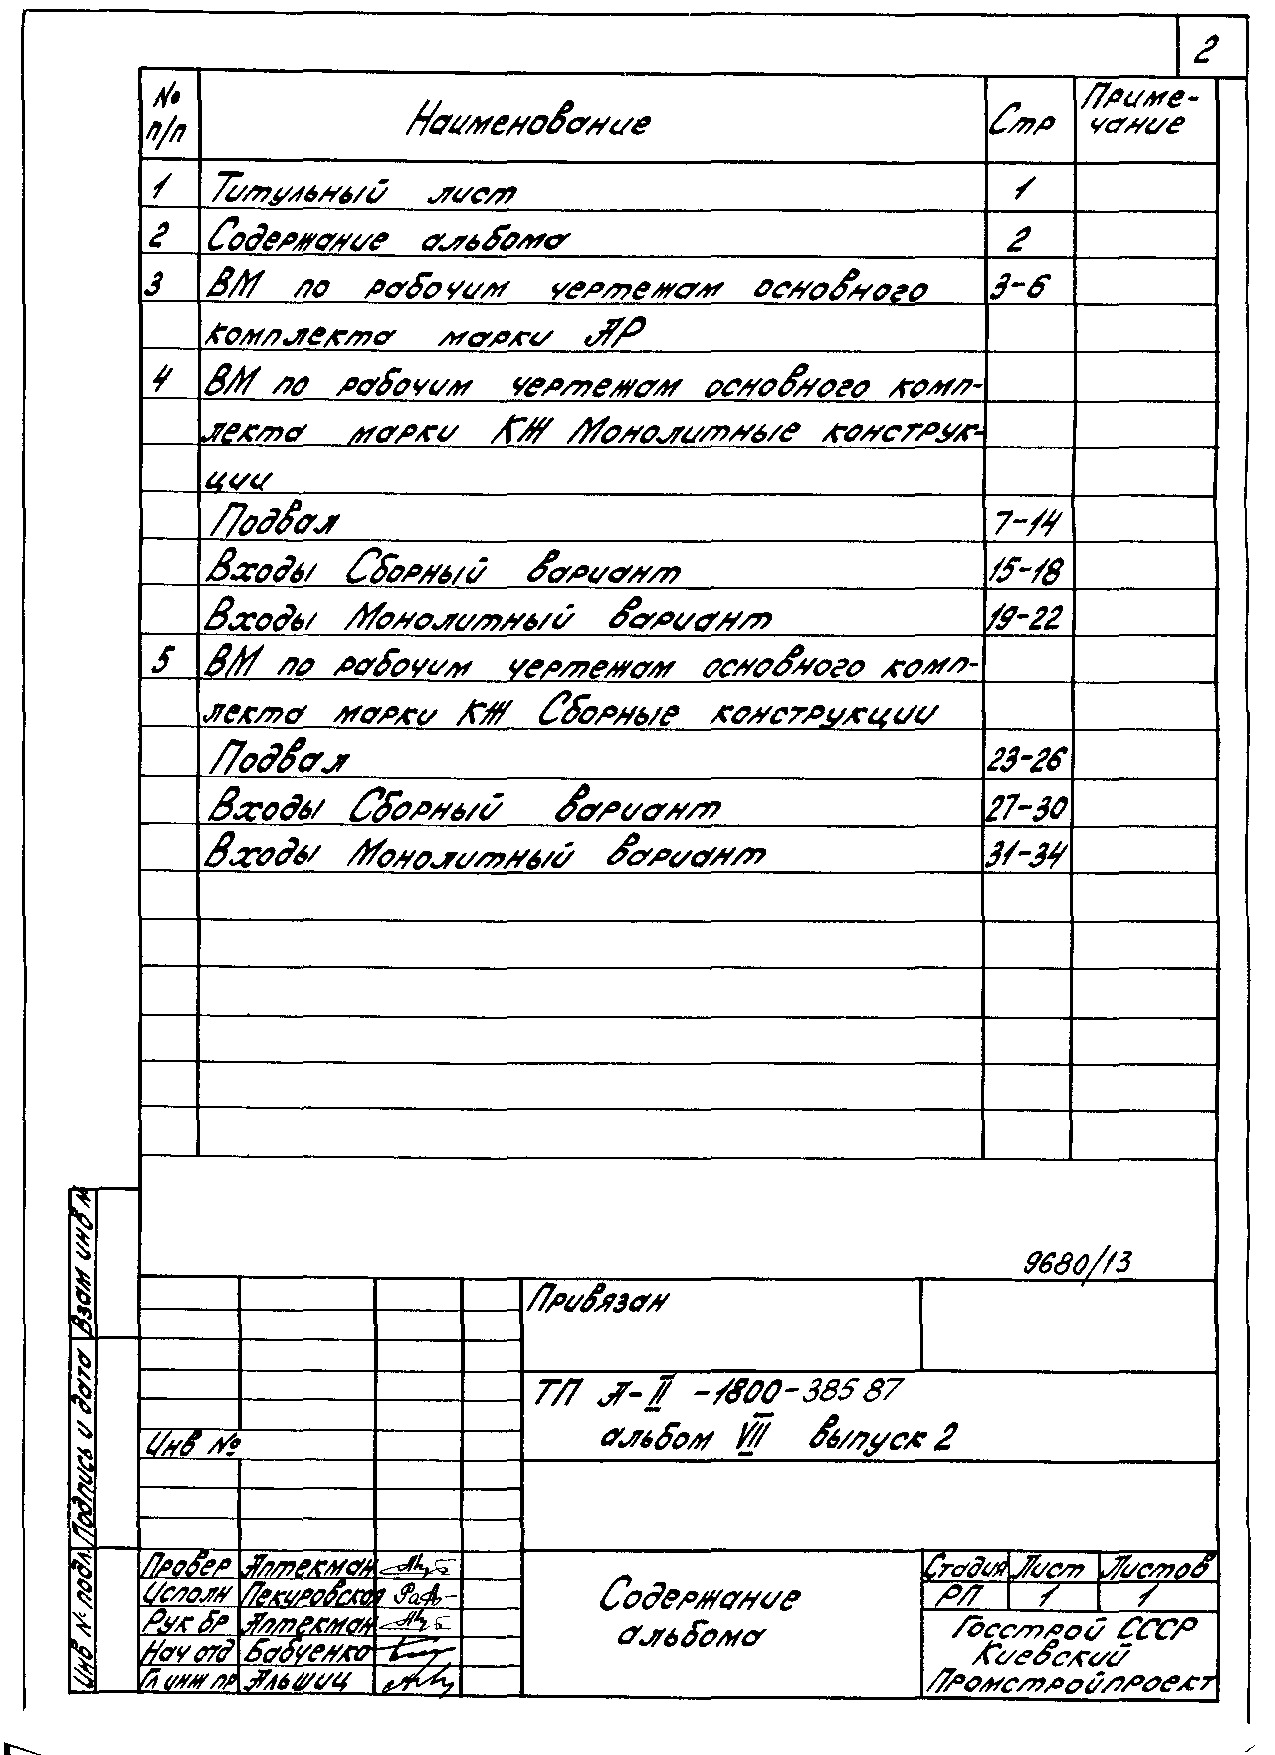 2
№ п/п Наименование Стр Приме-
чание
1 Титульный лист 1
2 Содержание альбома 2
3 ВМ по рабочим чертежам основного 3-6
комплекта марки АР
4 ВМ по рабочим чертежам основного комп-
лекта марки КЖ Монолитные конструк-
ции
Подвал 7-14
Входы Сборный вариант 15-18
Входы Монолитный вариант 19-22
5 ВМ по рабочим чертежам основного комп-
лекта марки КЖ Сборные конструкции
Подвал 23-26
Входы Сборный вариант 27-30
Входы Монолитный вариант 31-34
9680/13
Привязан
ТП А-II-1800-385 87
альбом VIII выпуск 2
Инв №
Взам инв №
Подпись и дата
Инв № подл.
Провер Аптекман
Исполн Пекуровская
Рук бр Аптекман
Нач отд Бабченко
Гл инж пр Альшиц
Содержание
альбома
Стадия Лист Листов
РП 1 1
Госстрой СССР
Киевский
Промстройпроект